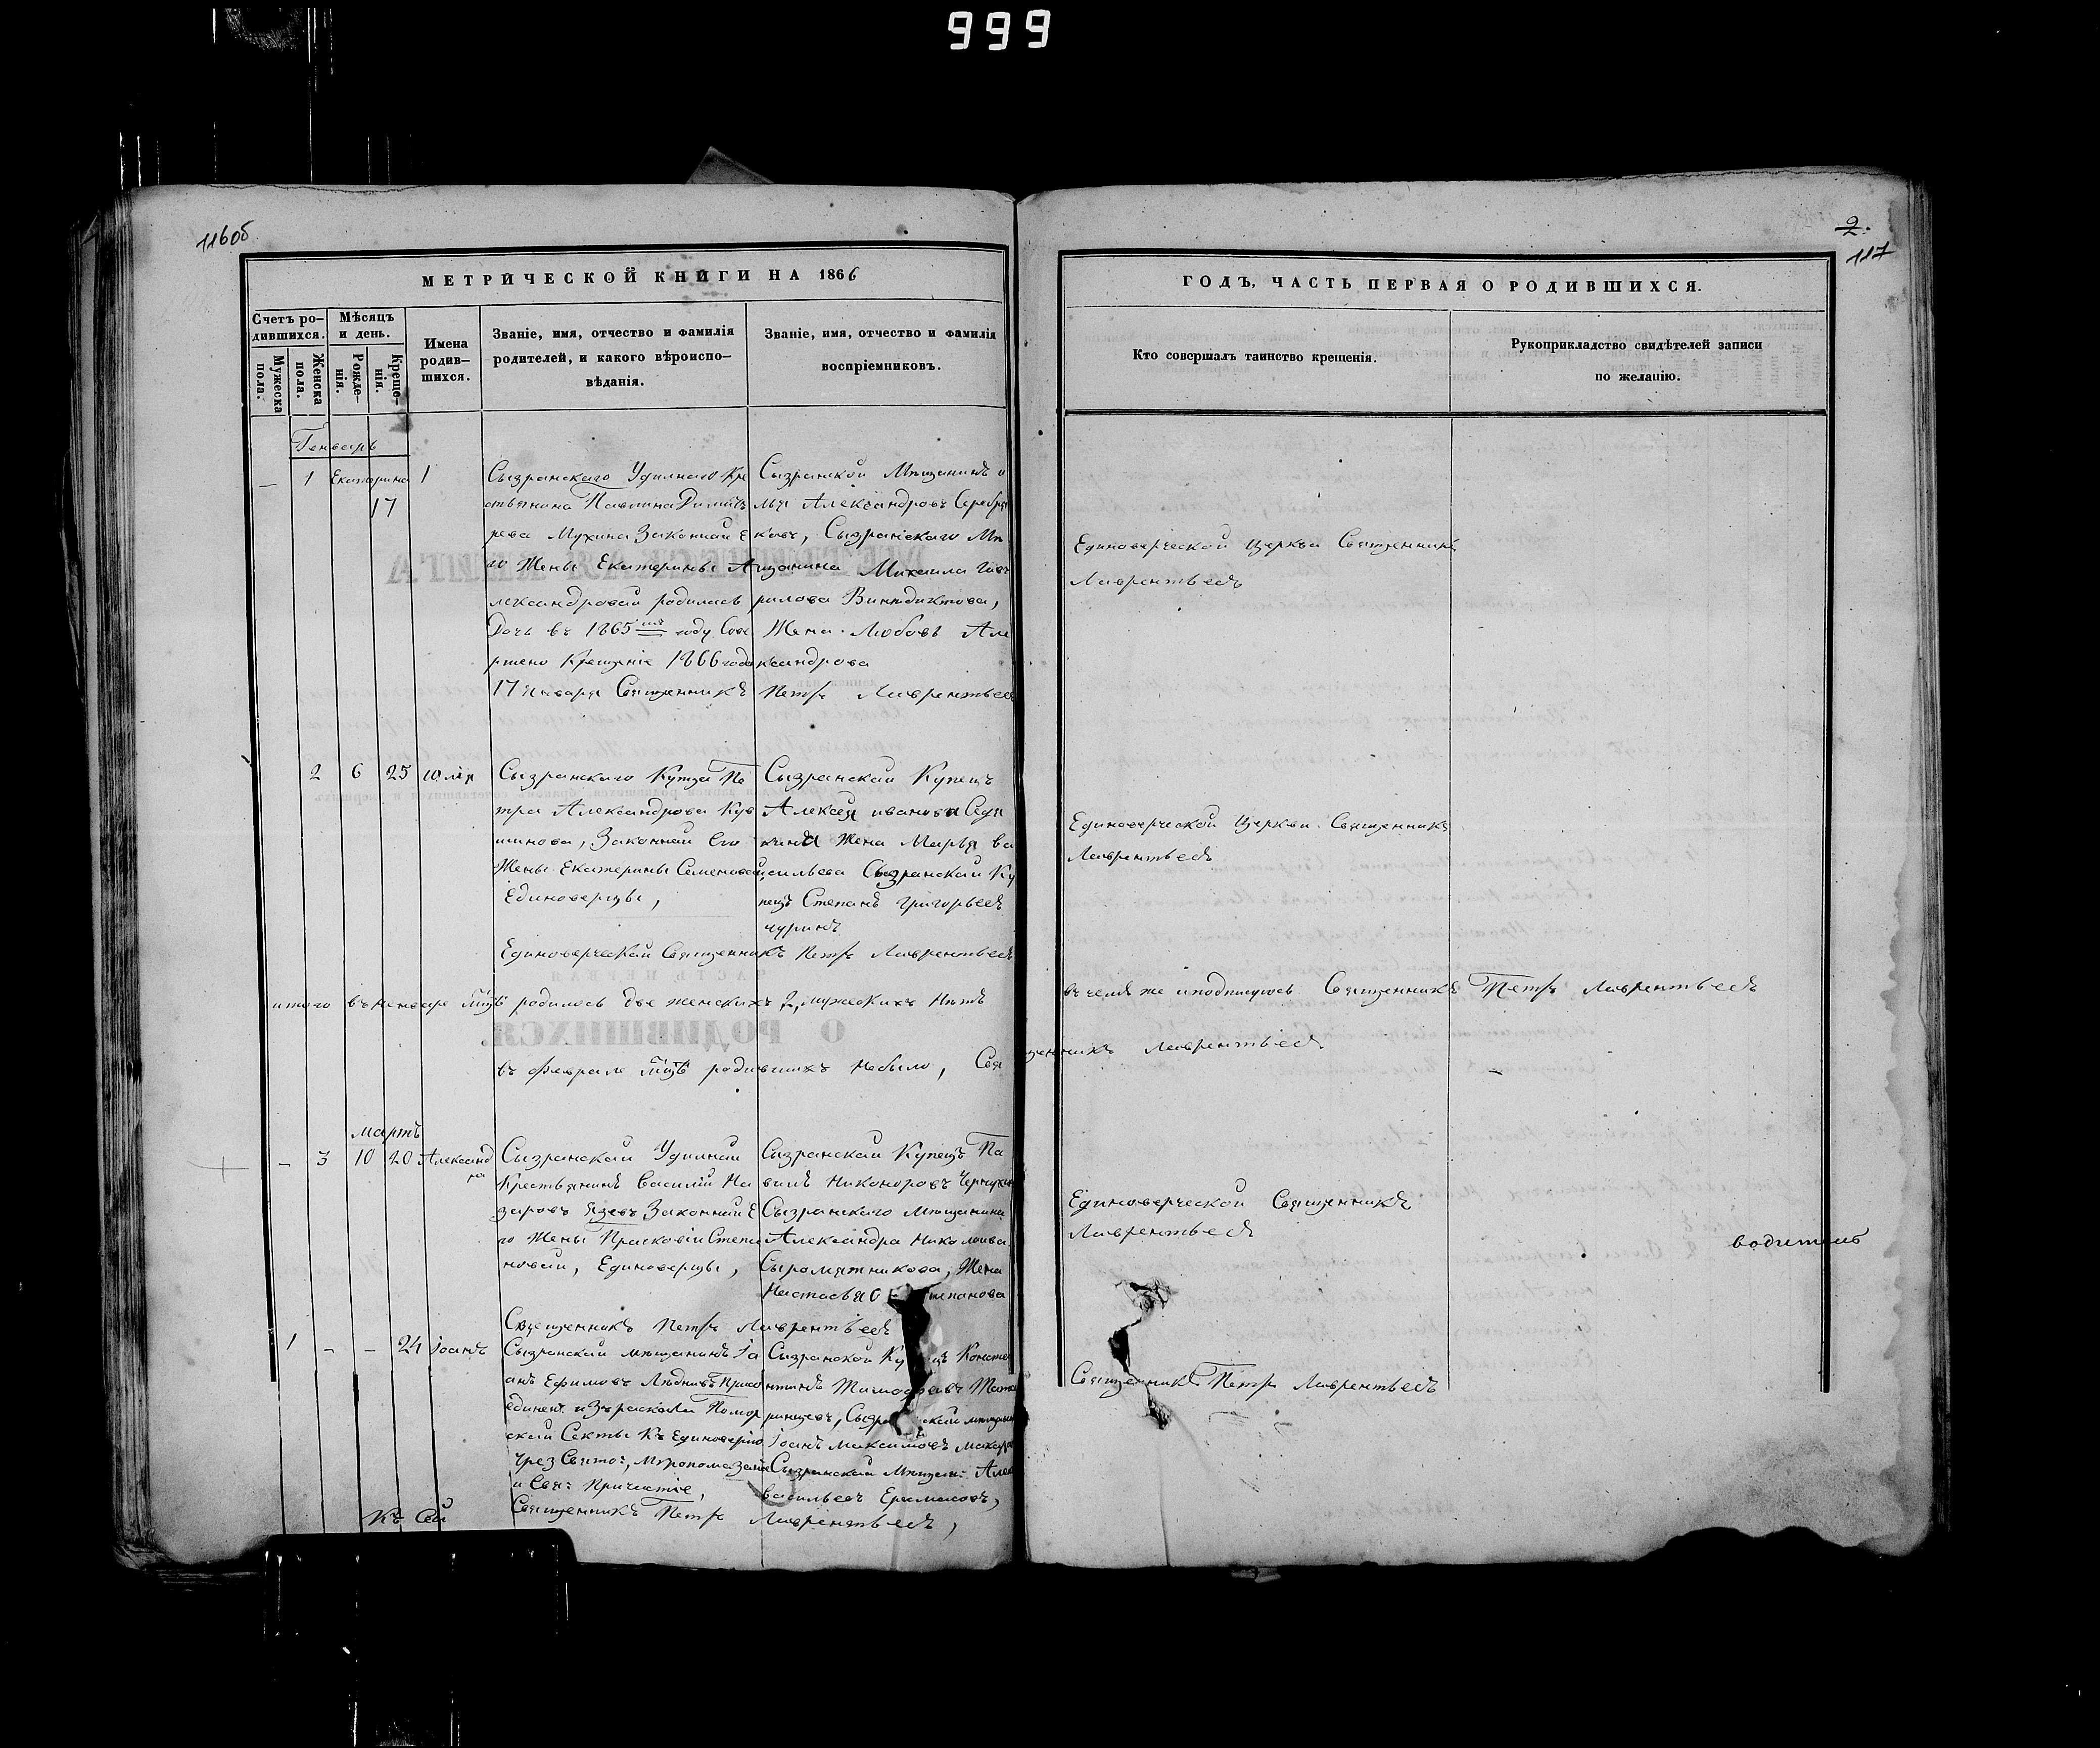 999
116об
МЕТРИЧЕСКОЙ КНИГИ НА 1866
Счетъ ро-
дившихся.
Мужеска
пола.
Женска
пола.
Мѣсяцъ
и день.
Рожде-
нія.
Креще-
нія.
Имена
родив-
шихся.
Званіе, имя, отчество и фамилія
родителей, и какого вѣроиспо-
вѣданія.
Званіе, имя, отчество и фамилія
воспріемниковъ.
Генварь
— 1 Екатерина 1
17
Сызранскаго Удилнаго Кре
стьянина Павлина Димит
рева Мухина Законнаи Е
го Жены Екатерины А
лександроваи родилась
Дочь въ 1865 году Сове
ршено Крещеніе 1866 года
17 Января Священникъ
Сызранской Мѣщанинъ и
лья Александровъ Серебря
ковъ, Сызранскаго Мѣ
щанина Михаила Гав
рилова
Жена Любовь Але
ксандрова
Петръ Лаврентьевъ
2 6 25 юлія
Сызранскаго Купца Пе
тра Александрова Кув
шинова, Законнаи Его
Жены Екатерины Семеноваи,
Единоверцы,
Сызранскаи Купецъ
Алексея иванова Седи
кина Жена Марья ва
сильева Сызранскаи Ку
пецъ Степанъ Григорьевъ
чуринъ
Единоверческаи Священникъ Петръ Лаврентьевъ
итого въ Генваре мцѣ родилось две женскихъ 2, мужескихъ Нѣтъ
въ Феврале мцѣ родившихъ небыло, Свя
мартъ
— 3 10 20 Александ
ра
Сызранскаи Удилнаи
Крестьянинъ Василіи На
заровъ Законнаи Е
го Жены Прасковіи Степа
новаи, Единоверцы,
Сызранскаи Купецъ Па
велъ Никоноровъ Чернухин
Сызранскаго Мѣщанина
Александра Николаива
Сыромятникова, Жена
Настасья Степанова
Священникъ Петръ Лаврентьевъ
1 - - 24 іоанъ
Сызранскаи мѣщанинъ Іо
анъ Ефимовъ Присо
единен. изъ раскола Помор
скаи Секты Къ Единоверію
Чрез Свято:, Мѵропомазаніе
и Свя: Причастіе,
Священникъ Петръ Лаврентьевъ,
Сызранскаи Купецъ Конста
нтинъ Тимофеевъ
Сызранскаи мещанин
іоанъ Максимовъ Макаро
Сызранскаи Мѣщан: Алек
Васильевъ Ермаковъ,
Къ Сей
2.
117
ГОДЪ, ЧАСТЬ ПЕРВАЯ О РОДИВШИХСЯ.
Кто совершалъ таинство крещенія.
Рукоприкладство свидѣтелей записи
по желанію.
Единоверческой Церкви Священникъ
Лаврентьевъ
Единоверческой Церкви Священникъ
Лаврентьевъ
въ чемъ же иподписуюсь Священникъ Петръ Лаврентьевъ
щенникъ Лаврентьевъ
Единоверческой Священникъ
Лаврентьевъ
Священникъ Петръ Лаврентьевъ